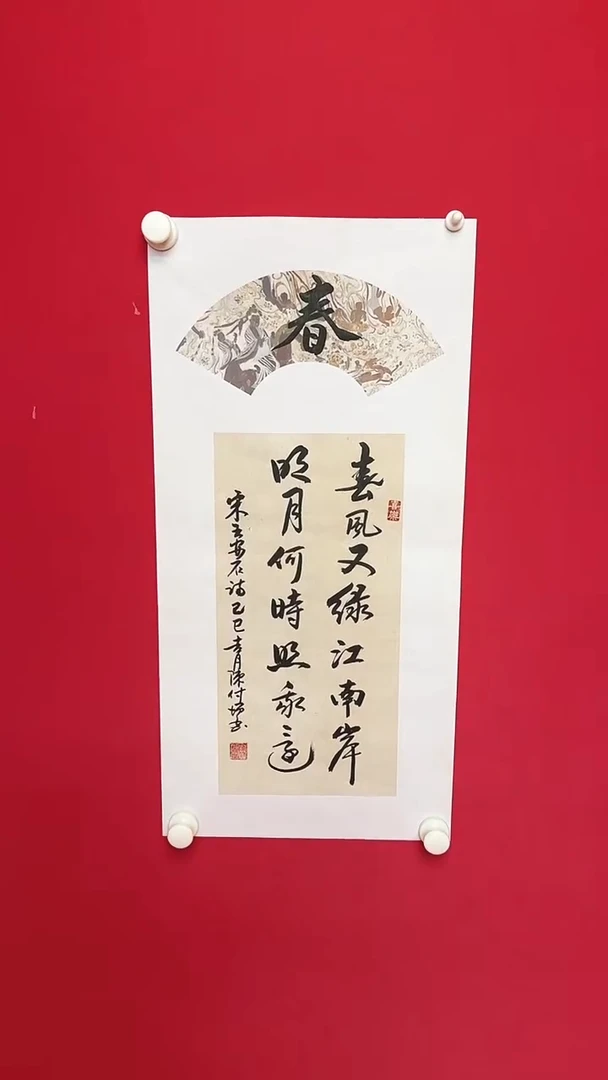 春
春風又綠江南岸
明月何時照我還
宋王安石诗乙巳吉月陈付书